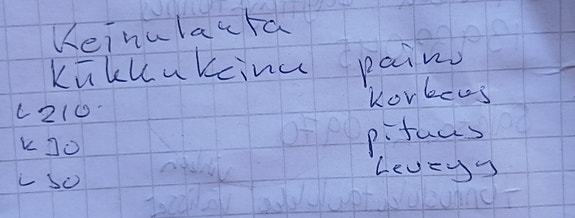 Keinulauta
Kiikkukeinu paino
L 210. Korkeus
K 90 pituus
L 50 Leveyys